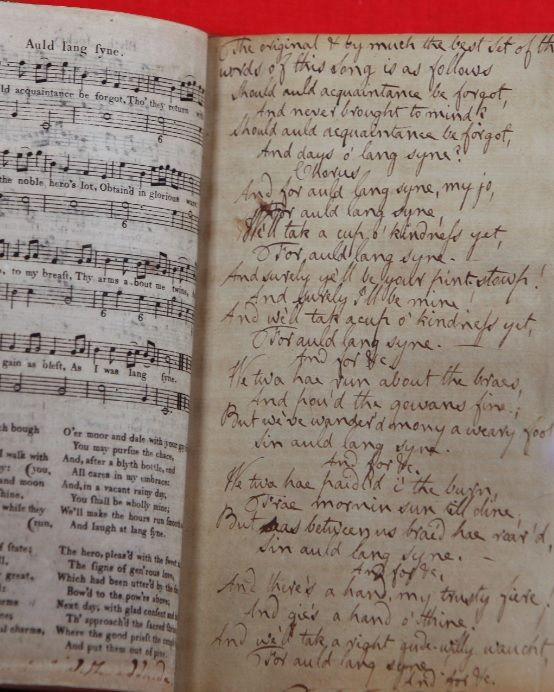 Auld lang ſyne.
ld acquaintance be forgot, Tho' they return with
6
the noble hero's lot, Obtain'd in glorious wars
6
, to my breaſt, Thy arms a bout me twine,
6 6
gain as bleſt, As I was lang ſyne.
6
ch bough
l walk with
y: (you,
and moon
shine,
while they
(run,
f state;
great,
eme
nes
ul charms,
O'er moor and dale with your
You may purſue the chace,
And, after a blyth bottle, end
All cares in my embrace:
And, in a vacant rainy day,
You ſhall be wholly mine;
We'll make the hours run ſmooth
And laugh at lang ſyne.
The hero, pleas'd with the ſweet
The ſigns of gen'rous love,
Which had been utter'd by the
Bow'd to the pow'rs above;
Next day, with glad conſent and
Th' approach'd the ſacred
Where the good prieſt the
And put them out of
The original & by much the best set of th
words of this song is as follows
Should auld acquaintance be forgot,
And never brought to mind?
Should auld acquaintance be forgot,
And days o' lang syne?
Chorus
And for auld lang syne, my jo,
For auld lang syne,
We'll tak a cup o' kindneſs yet,
For auld lang syne. —
And surely ye'll be your pint-stowp!
And surely I'll be mine!
And we'll tak a cup o' kindneſs yet,
For auld lang syne. —
And for &c.
We twa hae run about the braes,
And pou'd the gowans fine;
But we've wander'd mony a weary foot
Sin auld lang syne.
And for &c.
We twa hae paidl'd i' the burn,
Frae mornin sun till dine;
But seas between us braid hae roar'd,
Sin auld lang syne. —
And for &c.
And there's a hand, my trusty fiere!
And gie's a hand o' thine!
And we'll tak a right gude-willy waught,
For auld lang syne
And for &c.